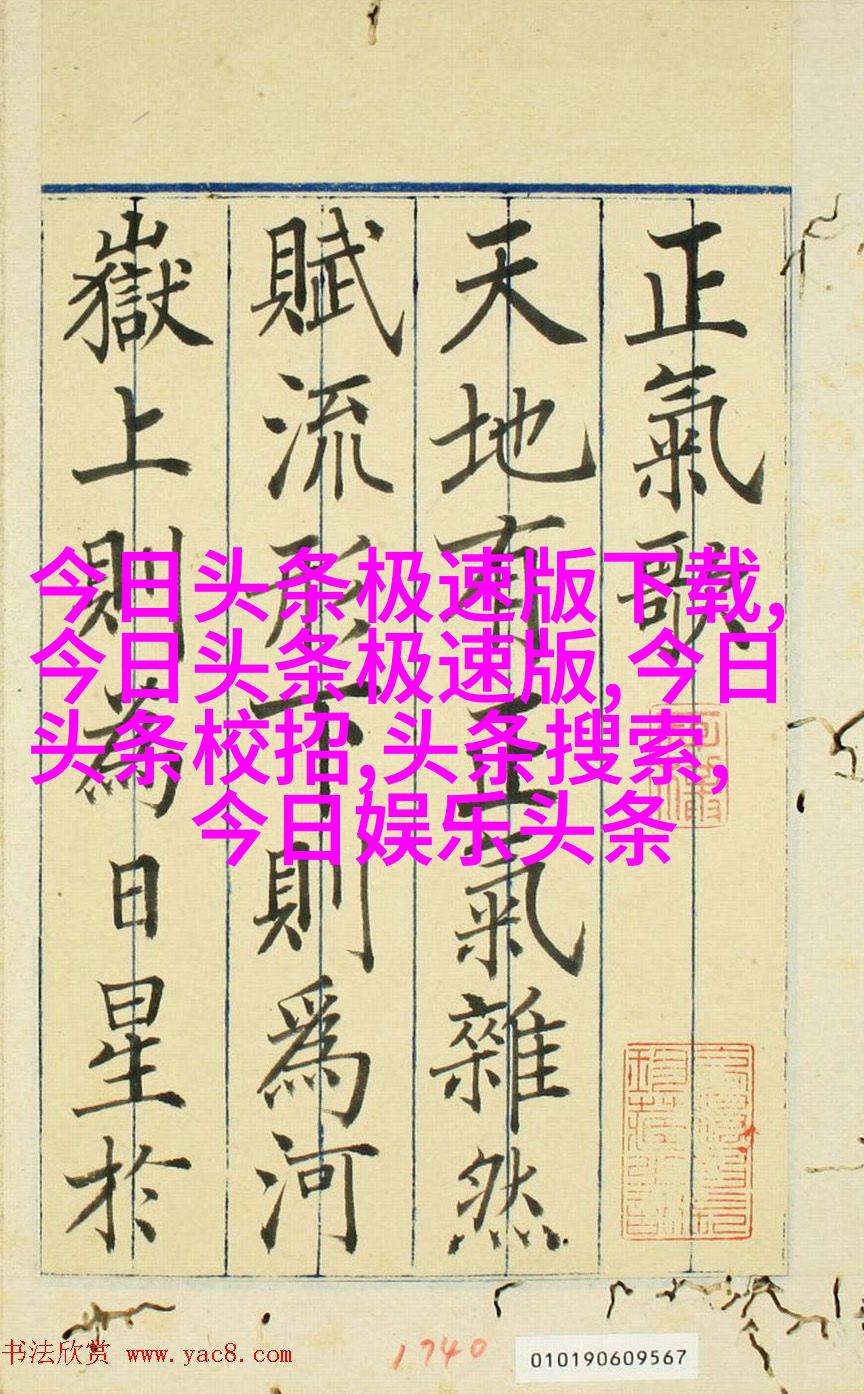 正氣歌
天地有正氣雜然
賦流形下則為河
嶽上則為日星於
今日头条极速版下载,
今日头条极速版,今日
头条校招,头条搜索,
今日娱乐头条
书法欣赏 www.yac8.com
1740
010190609567